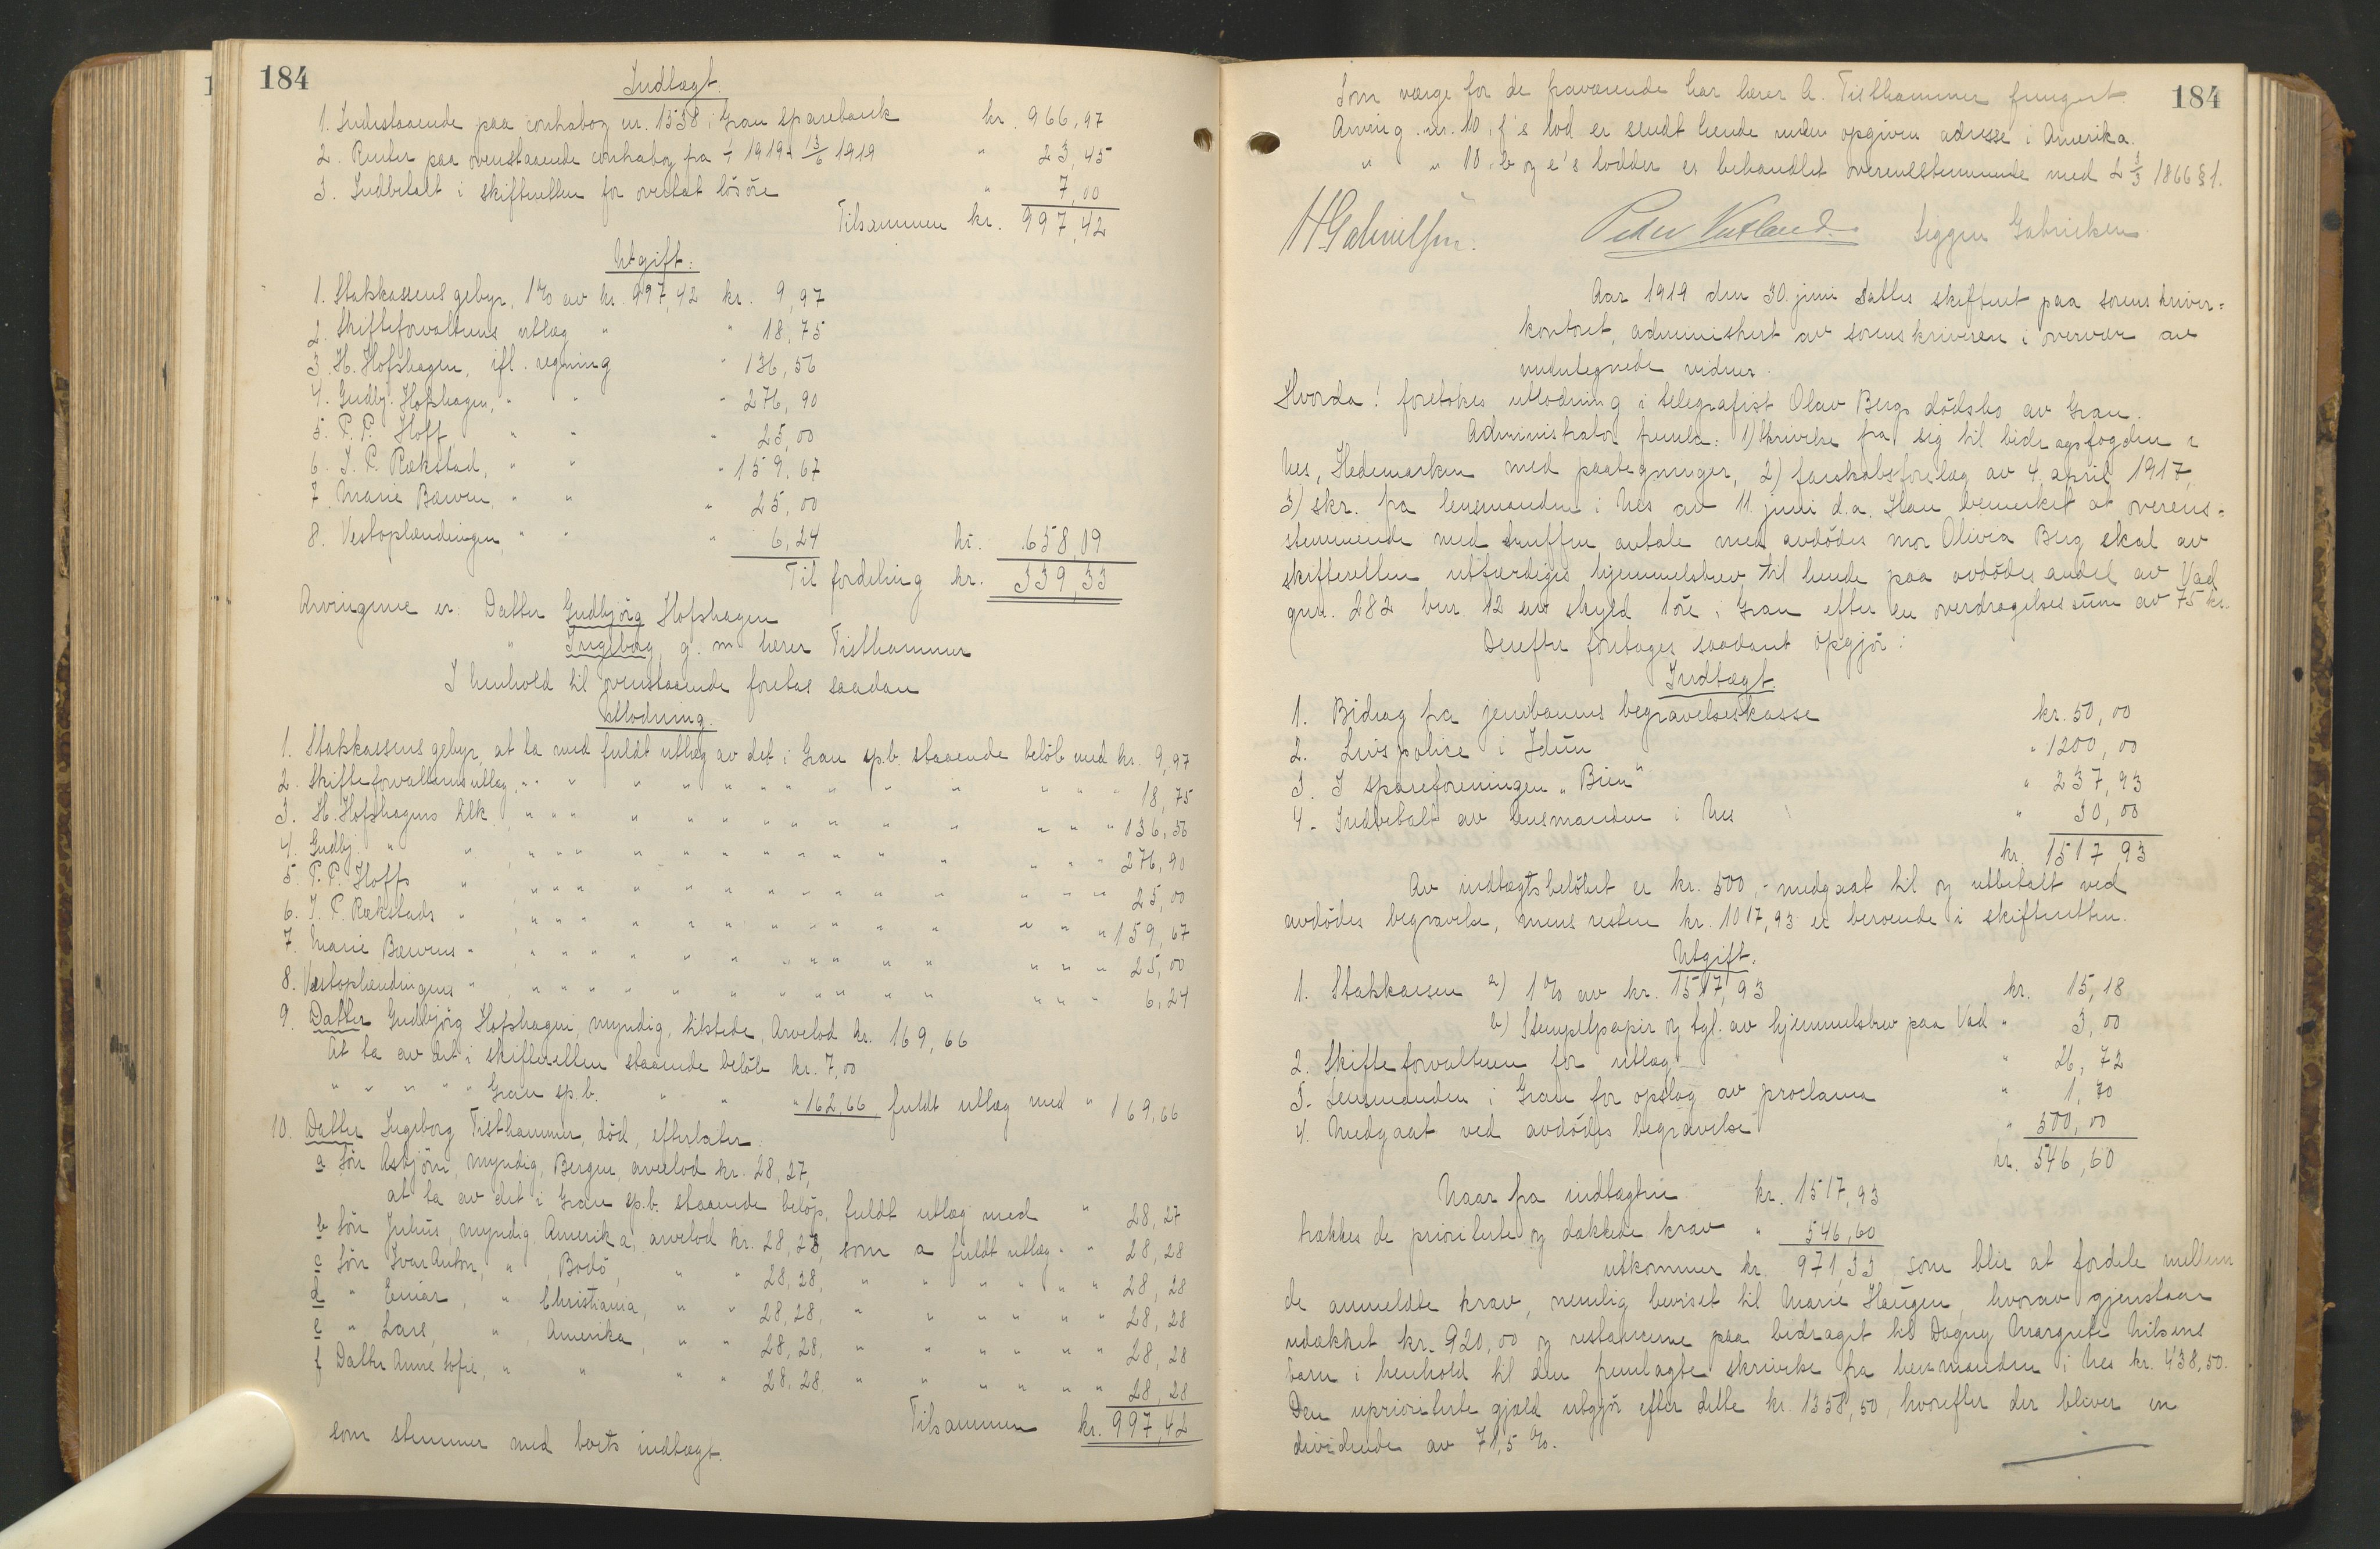 184
Indtægt.
1. Indestaaende paa contrabog nr. 1538 i Gran sparebank kr. 966,97
2. Renter paa ovenstaaende contrabog fra 1/1 1919 - 13/6 1919 " 23,45
3. Indbetalt i skifteretten for overtat løsøre " 7,00
Tilsammen kr. 997,42
Utgift:
1. Statskassens gebyr, 1% av kr. 997,42 kr. 9,97
2. Skifteforvalterens utlæg " " 18,75
3. H. Hofshagen, ifl. regning " 136,56
4. Gudbj. Hofshagen, " " " 276,90
5. P. P. Hoff, " " " 25,00
6. I. P. Rækstad, " " " 159,67
7. Marie Bæwen, " " " 25,00
8. Vestoplændingen, " " " 6,24 kr. 658,09
Til fordeling kr. 339,33
Arvingerne er: Datter Gudbjörg Hofshagen
" Ingeborg, g. m. lærer Tisthammer
I henhold til ovenstaaende foretas saadan
utlodning.
1. Statskassens gebyr, at ta med fuldt utlæg av det i Gran sp.b. staaende beløb med kr. 9,97
2. Skifteforvalterens utlæg, " " " " " " " " " " " " " 18,75
3. H. Hofshagens tilk. , " " " " " " " " " " " " " 136,56
4. Gudbj. " " , " " " " " " " " " " " " " 276,90
5. P. P. Hoffs " , " " " " " " " " " " " " " 25,00
6. I. P. Rækstads " , " " " " " " " " " " " " " 159,67
7. Marie Bæwens " , " " " " " " " " " " " " " 25,00
8. Vestoplændingens " , " " " " " " " " " " " " " 6,24
9. Datter Gudbjörg Hofshagen, myndig, tilstede, Arvelod kr. 169,66
At ta av det i skifteretten staaende beløb kr. 7,00
" " " " " Gran sp.b. " " " 162,66 fuldt utlæg med " 169,66
10. Datter Ingeborg Tisthammer, død, efterlater
a Søn Asbjørn, myndig, Bergen, arvelod kr. 28,27,
at ta av det i Gran sp.b. staaende beløp, fuldt utlæg med " 28,27
b Søn Julius, myndig, Amerika, arvelod kr. 28,28, som a fuldt utlæg " " 28,28
c Søn Ivar Anton, " , Bodø, " " 28,28, " " " " " " 28,28
d " Einar, " Christiania, " " 28,28, " " " " " " 28,28
e " Lars, " , Amerika, " " 28,28, " " " " " " 28,28
f Datter Anne Sofie, " " " " 28,28, " " " " " " 28,28
Tilsammen kr. 997,42
som stemmer med boets indtægt.
184
Som værge for de fraværende har lærer A. Tisthammer fungert.
Arving nr. 10, f's lod er sendt hende under opgiven adresse i Amerika.
" " 10, b og e's lodder er behandlet overensstemmende med L 3/3 1866 § 1.
H Gabrielsen. Peter Vestland. Siggen Gabrielsen
Aar 1919 den 30. juni sattes skifteret paa sorenskriver=
kontoret, administrert av sorenskriveren i overvær av
undertegnede vidner.
Hvorda! foretokes utlodning i telegrafist Olav Bergs dødsbo av Gran.
Administrator fremla: 1) Skrivelse fra sig til bidragsfogden i
Nes, Hedemarken med paategninger, 2) farskabsforelæg av 4. april 1917,
3) skr. fra lensmanden i Nes av 11. juni d.a. Han bemerket at overens=
stemmende med truffen avtale med avdødes mor Olivia Berg skal av
skifteretten utfærdiges hjemmelsbrev til hende paa avdødes andel av Vad
gnr. 282 bnr. 12 av skyld 1 øre i Gran efter en overdragelsessum av 75 kr.
Derefter foretages saadant opgjør:
Indtægt.
1. Bidrag fra jernbanens begravelseskasse kr. 50,00
2. Livspolice i Idun " 1200,00
3. I spareforeningen "Bien" " 237,93
4. Indbetalt av lensmanden i Nes " 30,00
kr. 1517,93
Av indtægtsbeløbet er kr. 500,- medgaat til og utbetalt ved
avdødes begravelse, mens resten kr. 1017,93 er beroende i skifteretten.
Utgift.
1. Statskassen a) 1% av kr. 1517,93 kr. 15,18
b) Stempelpapir og tgl. av hjemmelsbrev paa Vad " 3,00
2. Skifteforvalteren for utlæg " 26,72
3. Lensmanden i Gran for opslag av proclama " 1,70
4. Medgaat ved avdødes begravelse " 500,00
kr. 546,60
Naar fra indtægten kr. 1517,93
trækkes de prioriterte og dækkede krav " 546,60
utkommer kr. 971,33 som blir at fordele mellem
de anmeldte krav, nemlig beviset til Marie Haugen, hvorav gjenstaar
udækket kr. 920,00 og restancerne paa bidraget til Dagny Margrete Nilsens
barn i henhold til den fremlagte skrivelse fra lensmanden i Nes kr. 438,50.
Den uprioriterte gjæld utgjør efter dette kr. 1358,50, hvorefter der blever en
dividende av 71,5 %.